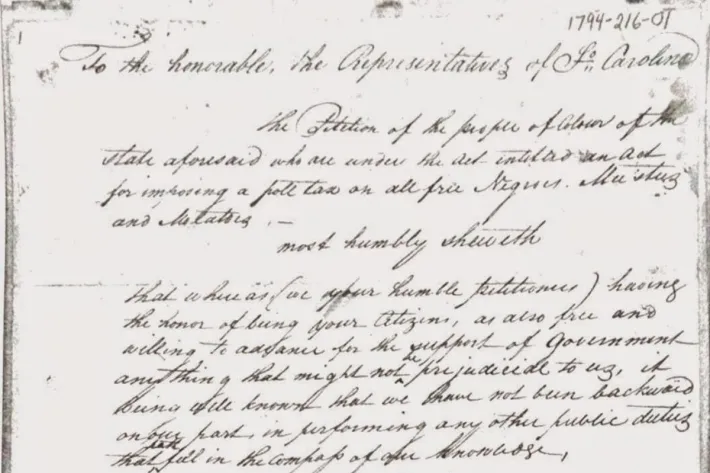 1794-216-01
To the honorable, the Representatives of So. Carolina
The Petition of the people of Colour of the
state aforesaid who are under the act intitled an act
for imposing a poll tax on all free Negroes. Mustees
and Mulatoes. —
most humbly sheweth
that whereas (we your humble petitioners) having
the honor of being your Citizens, as also free and
willing to advance for the support of Government
anything that might not be prejudicial to us, it
being well known that we have not been backward
on our part, in performing any other public duties
that fall in the compass of our knowledge,